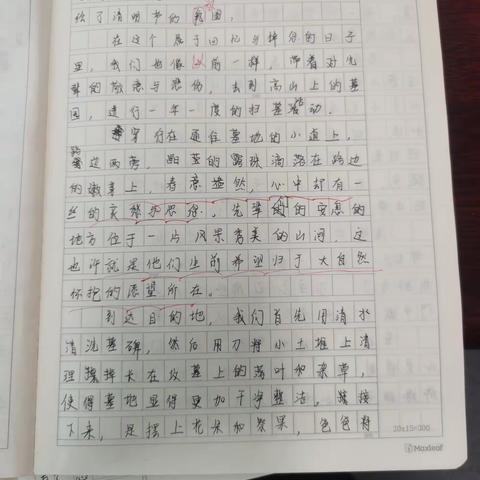 织了清明节的氛围。
在这个属于回忆与悼念的日子
里，我们也像以前一样，带着对先
辈的敬意与悲伤，去到高山上的墓
园，进行一年一度的扫墓活动。
穿行在通往墓地的小道上，
路过两旁，晶莹的露珠滴落在路边
的嫩草上，春意盎然，心中却有一
丝的哀愁和思念。先辈的安息的
地方位于一片风景秀美的山间，这
也许就是他们生前希望归于大自然
怀抱的愿望所在。
到达目的地，我们首先用清水
清洗墓碑，然后用刀将小土堆上清
理掉长在坟墓上的落叶和杂草，
使得墓地显得更加干净整洁，接
下来，是摆上花束和祭果，色色将
20x15=300
Maxleaf